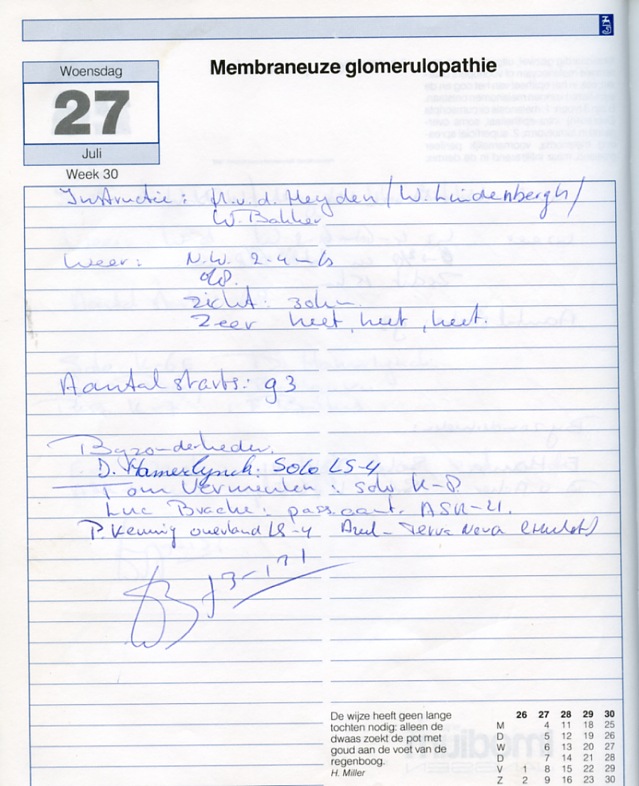 Woensdag
27
Juli
Week 30
Membraneuze glomerulopathie
Instructie: H.v.d. Heyden / W. Lindenbergh /
W. Bakker
Weer: N.W. 2-4 m/s
0/8.
zicht: 30km.
Zeer heet, heet, heet.
Aantal starts: 93
Byzonderheden.
D. Hamerlynck: Solo LS-4
Tom Vermeulen: solo K-8
Luc : passant. ASK-21.
P. overland LS-4 - Terra Nova (Hulst)
De wijze heeft geen lange
tochten nodig: alleen de
dwaas zoekt de pot met
goud aan de voet van de
regenboog.
H. Miller
26 27 28 29 30
M 4 11 18 25
D 5 12 19 26
W 6 13 20 27
D 7 14 21 28
V 1 8 15 22 29
Z 2 9 16 23 30